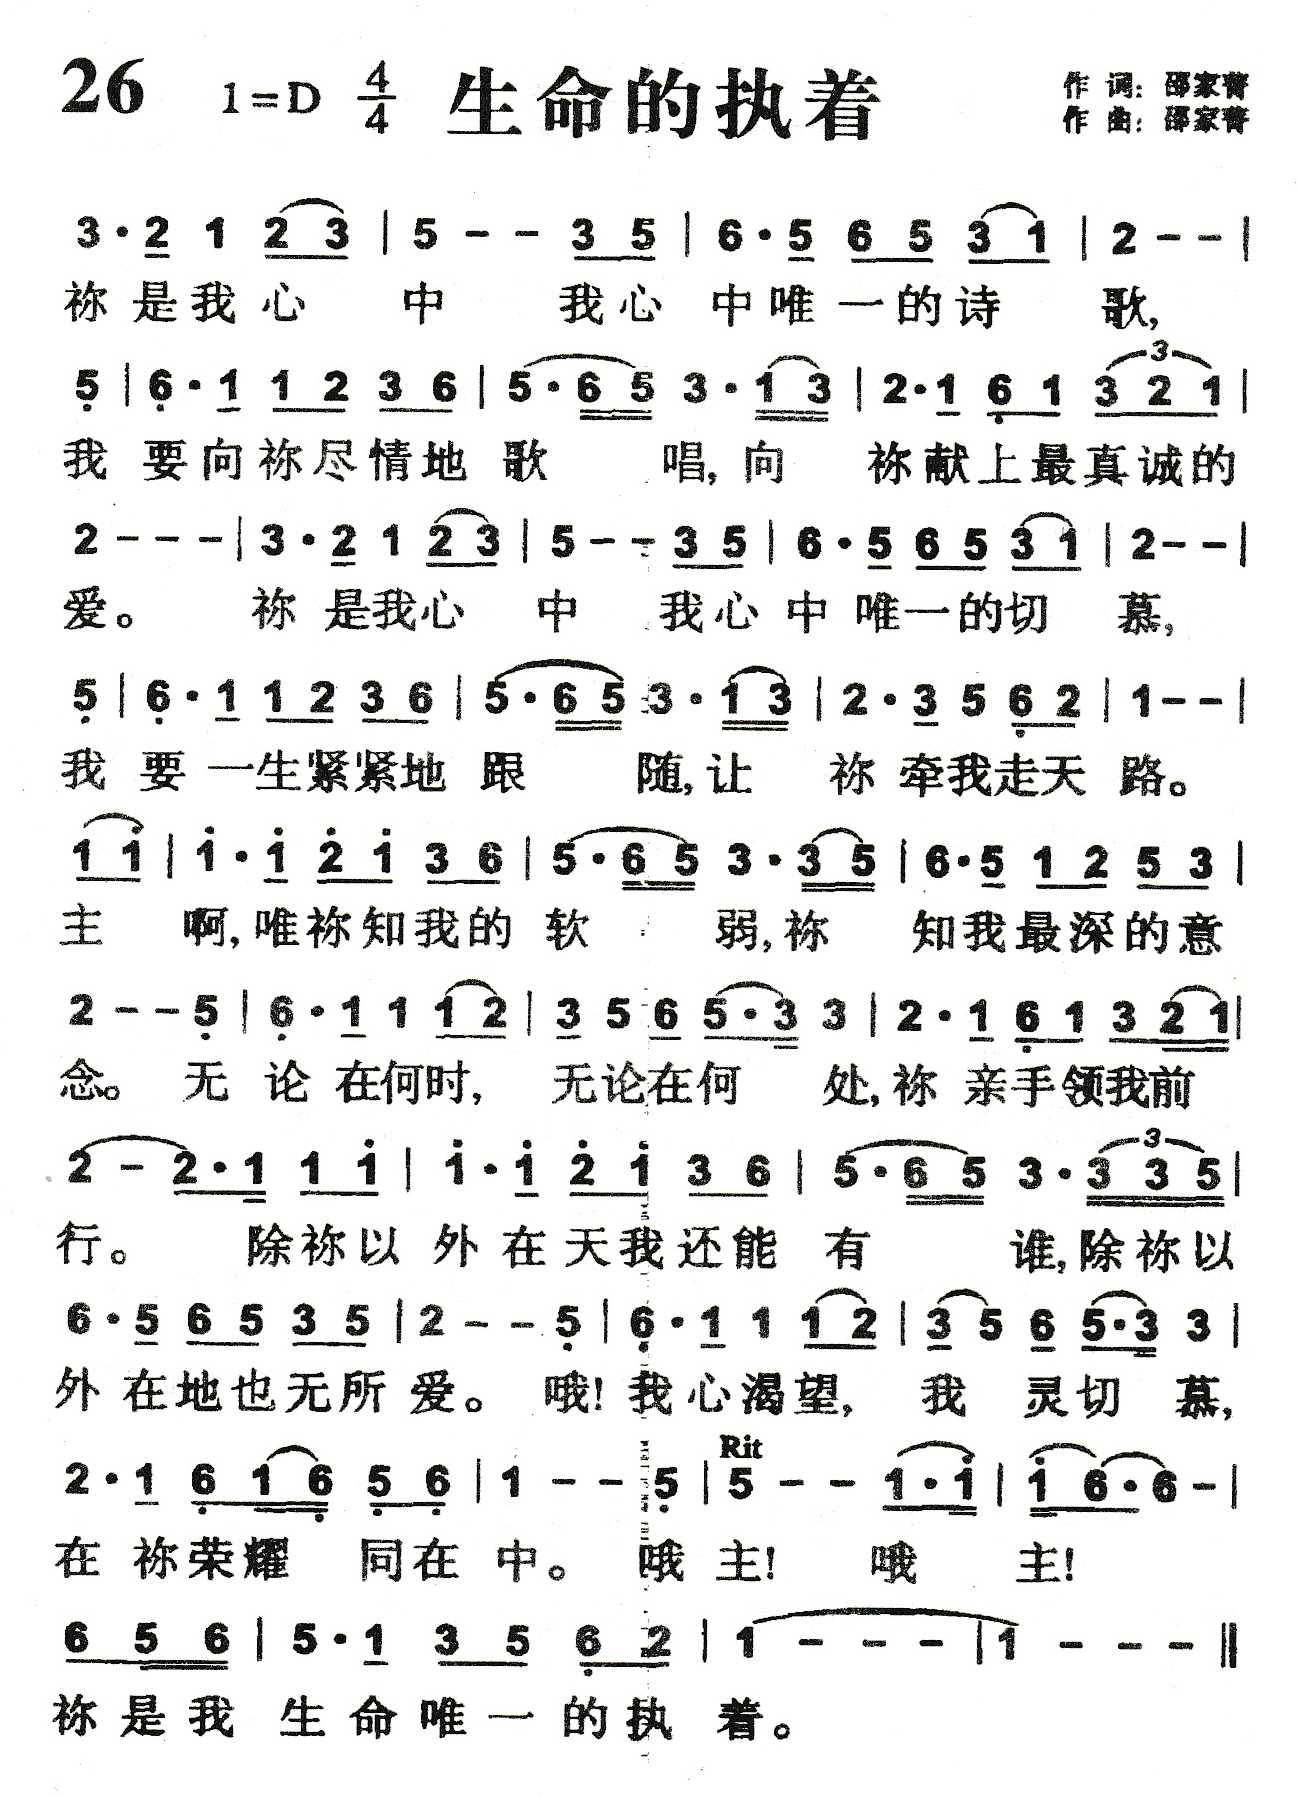 26 1=D 4/4 生命的执着
作词：邵家菁
作曲：邵家菁
3·2 1 2 3 | 5 - - 3 5 | 6·5 6 5 3 1 | 2 - - |
祢是我心 中 我心 中唯一的诗 歌,
5 | 6·1 1 2 3 6 | 5·6 5 3·1 3 | 2·1 6 1 3 2 1 |
3
我 要向祢尽情地 歌 唱, 向 祢献上最真诚的
2 - - - | 3·2 1 2 3 | 5 - - 3 5 | 6·5 6 5 3 1 | 2 - - |
爱。 祢 是我心 中 我心 中 唯一的切 慕,
5 | 6·1 1 2 3 6 | 5·6 5 3·1 3 | 2·3 5 6 2 | 1 - - |
我 要 一生紧紧地 跟 随, 让 祢 牵我走天 路。
1 1 | 1·1 2 1 3 6 | 5·6 5 3·3 5 | 6·5 1 2 5 3 |
主 啊, 唯祢知我的 软 弱, 祢 知我最深的意
2 - - 5 | 6·1 1 1 2 | 3 5 6 5·3 3 | 2·1 6 1 3 2 1 |
念。 无 论 在何时, 无论在何 处, 祢 亲手领我前
2 - 2·1 1 1 | 1·1 2 1 3 6 | 5·6 5 3·3 3 5 |
3
行。 除祢以 外 在天我还能 有 谁, 除祢以
6·5 6 5 3 5 | 2 - - 5 | 6·1 1 1 2 | 3 5 6 5·3 3 |
外 在地也无所 爱。 哦! 我心渴望, 我 灵切 慕,
2·1 6 1 6 5 6 | 1 - - 5 | 5 - - 1·1 | 1 6·6 - |
Rit
在 祢荣耀 同在 中。 哦 主! 哦 主!
6 5 6 | 5·1 3 5 6 2 | 1 - - - | 1 - - - ‖
祢是我 生命唯一的执 着。